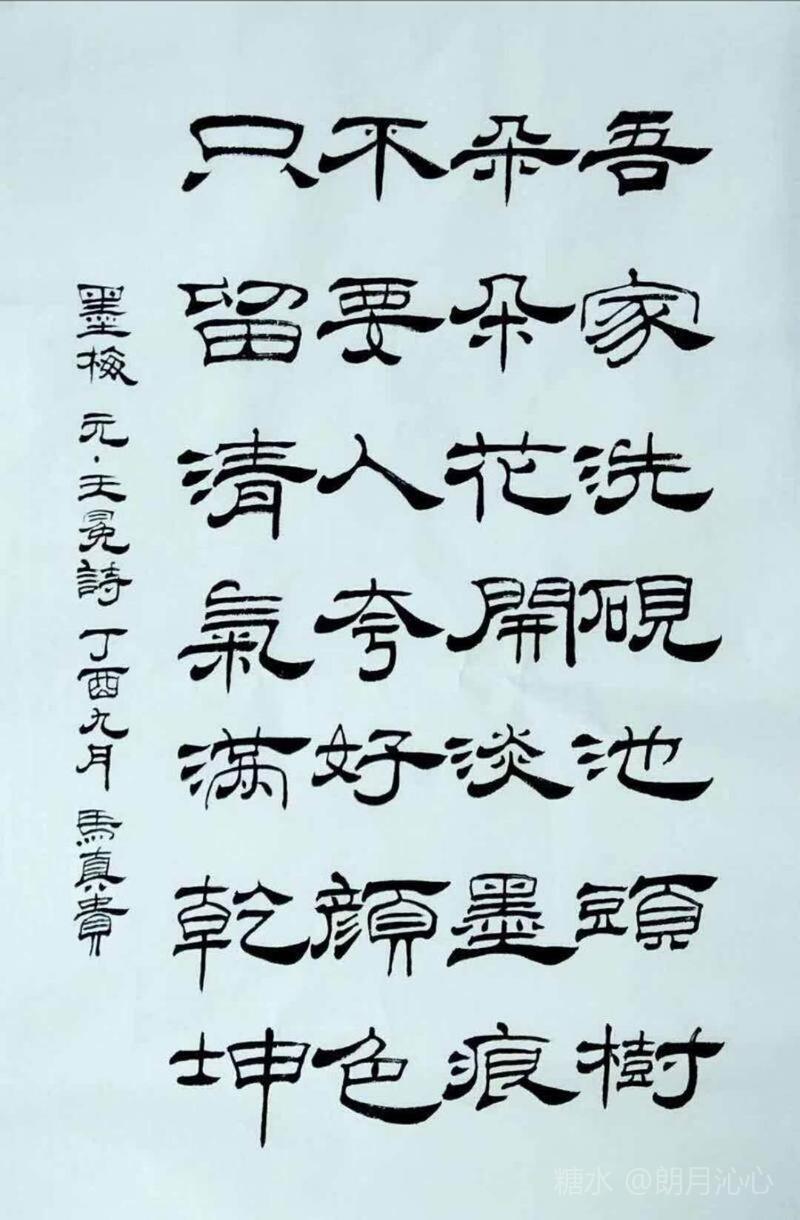 吾家洗硯池頭樹
朵朵花開淡墨痕
不要人夸好顏色
只留清氣滿乾坤
墨梅 元·王冕詩 丁酉九月 馬真貴
糖水 @朗月沁心